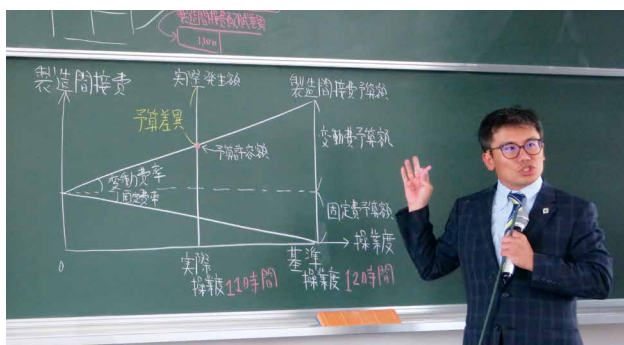 製造間接費
実際発生額
製造間接費予算額
予算差異
予算許容額
変動費予算額
変動費率
固定費率
固定費予算額
操業度
0
実際
操業度110時間
基準
操業度120時間